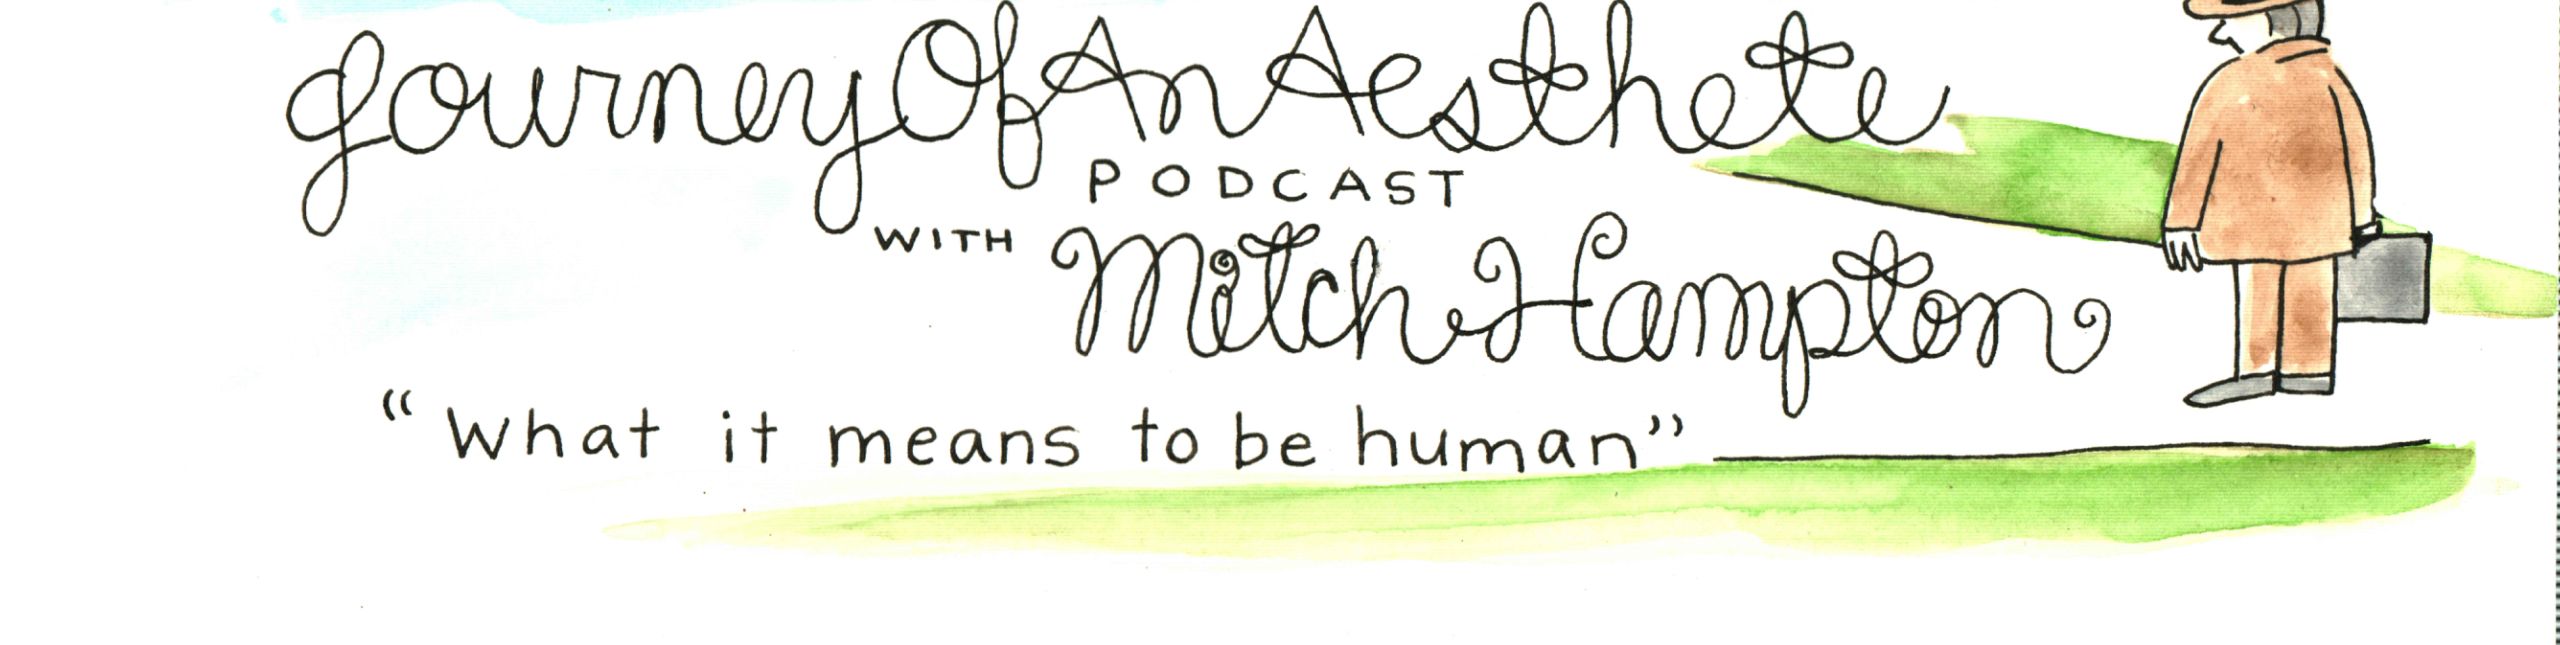 Journey Of An Aesthete
PODCAST
WITH Mitch Hampton
"What it means to be human"